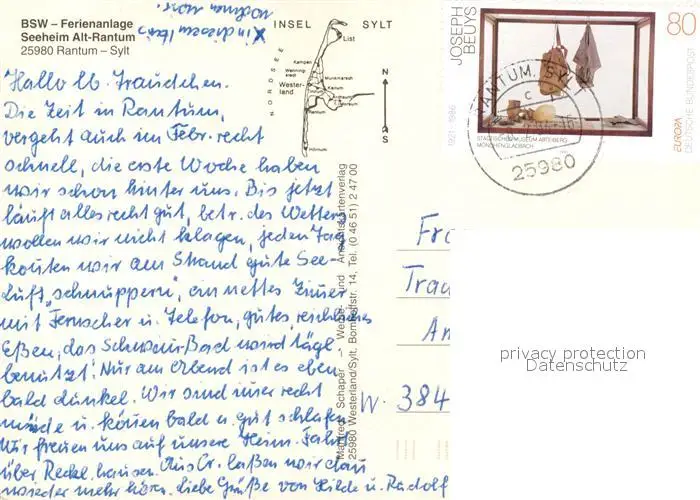 BSW – Ferienanlage
Seeheim Alt-Rantum
25980 Rantum – Sylt
INSEL SYLT
NORDSEE
List
Kampen
Wenning-
stedt
Munkmarsch
Wester-
land
Keitum
Rantum
Hörnum
N
S
JOSEPH
BEUYS
1921-1986
80
DEUTSCHE BUNDESPOST
EUROPA
STÄDTISCHES MUSEUM ABTEIBERG
MÖNCHENGLADBACH
RANTUM, SYLT
25980
X in diesem Haus
wohnen wir.
Hallo lb. Traudchen.
Die Zeit in Rantum,
vergeht auch im Febr. recht
schnell, die erste Woche haben
wir schon hinter uns. Bis jetzt
läuft alles recht gut, betr. des Wetters
wollen wir nicht klagen, jeden Tag
konten wir am Strand gute See-
Luft "schnuppern", ein nettes Zimer
mit Fernseher u. Telefon, gutes reichliches
Eßen, das Schwimbad wird tägl.
benutzt. Nur am Abend ist es eben
bald dunkel. Wir sind imer recht
müde u. könen bald u. gut schlafen
Wir freuen uns auf unsere Heim-Fahrt
über Reckl. hausen. Aus Cr. laßen wir dan
wieder mehr hören. Liebe Grüße von Hilde u. Rudolf
Manfred Schaper – Werbe- und Ansichtskartenverlag
25980 Westerland/Sylt, Bomhoffstr. 14, Tel. (0 46 51) 2 47 00
Fr
Trau
An
W. 384
privacy protection
Datenschutz